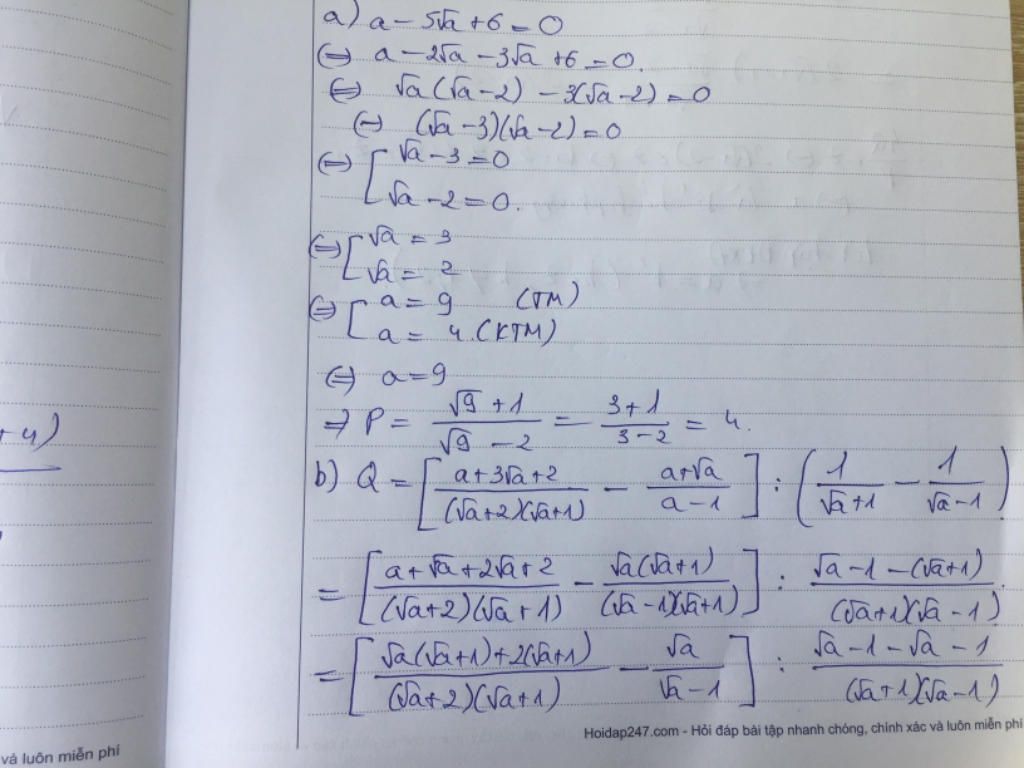 a) a - 5√a + 6 = 0
(=) a - 2√a - 3√a + 6 = 0.
(=) √a (√a - 2) - 3(√a - 2) = 0
(=) (√a - 3)(√a - 2) = 0
(=) [ √a - 3 = 0
√a - 2 = 0.
(=) [ √a = 3
√a = 2
(=) [ a = 9 (TM)
a = 4. (KTM)
(=) a = 9
=> P = (√9 + 1)/(√9 - 2) = (3 + 1)/(3 - 2) = 4.
b) Q = [ (a + 3√a + 2)/((√a + 2)(√a + 1)) - (a + √a)/(a - 1) ] : ( 1/(√a + 1) - 1/(√a - 1) )
= [ (a + √a + 2√a + 2)/((√a + 2)(√a + 1)) - (√a(√a + 1))/((√a - 1)(√a + 1)) ] : (√a - 1 - (√a + 1))/((√a + 1)(√a - 1)).
= [ (√a(√a + 1) + 2(√a + 1))/((√a + 2)(√a + 1)) - √a/(√a - 1) ] : (√a - 1 - √a - 1)/((√a + 1)(√a - 1))
+4)
Hoidap247.com - Hỏi đáp bài tập nhanh chóng, chính xác và luôn miễn phí
và luôn miễn phí